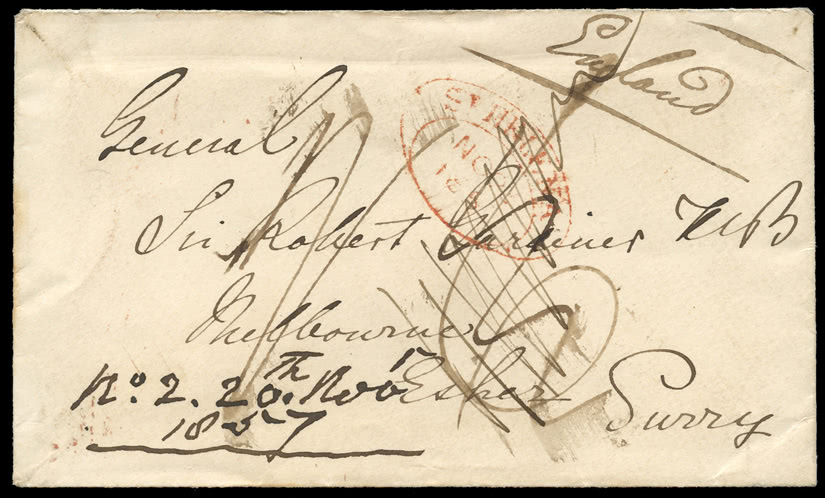 England
General
Sir Robert Gardiner KCB
Melbourne
Esher
Surry
No. 2. 20th Novr
1857
ST HELENA
NO